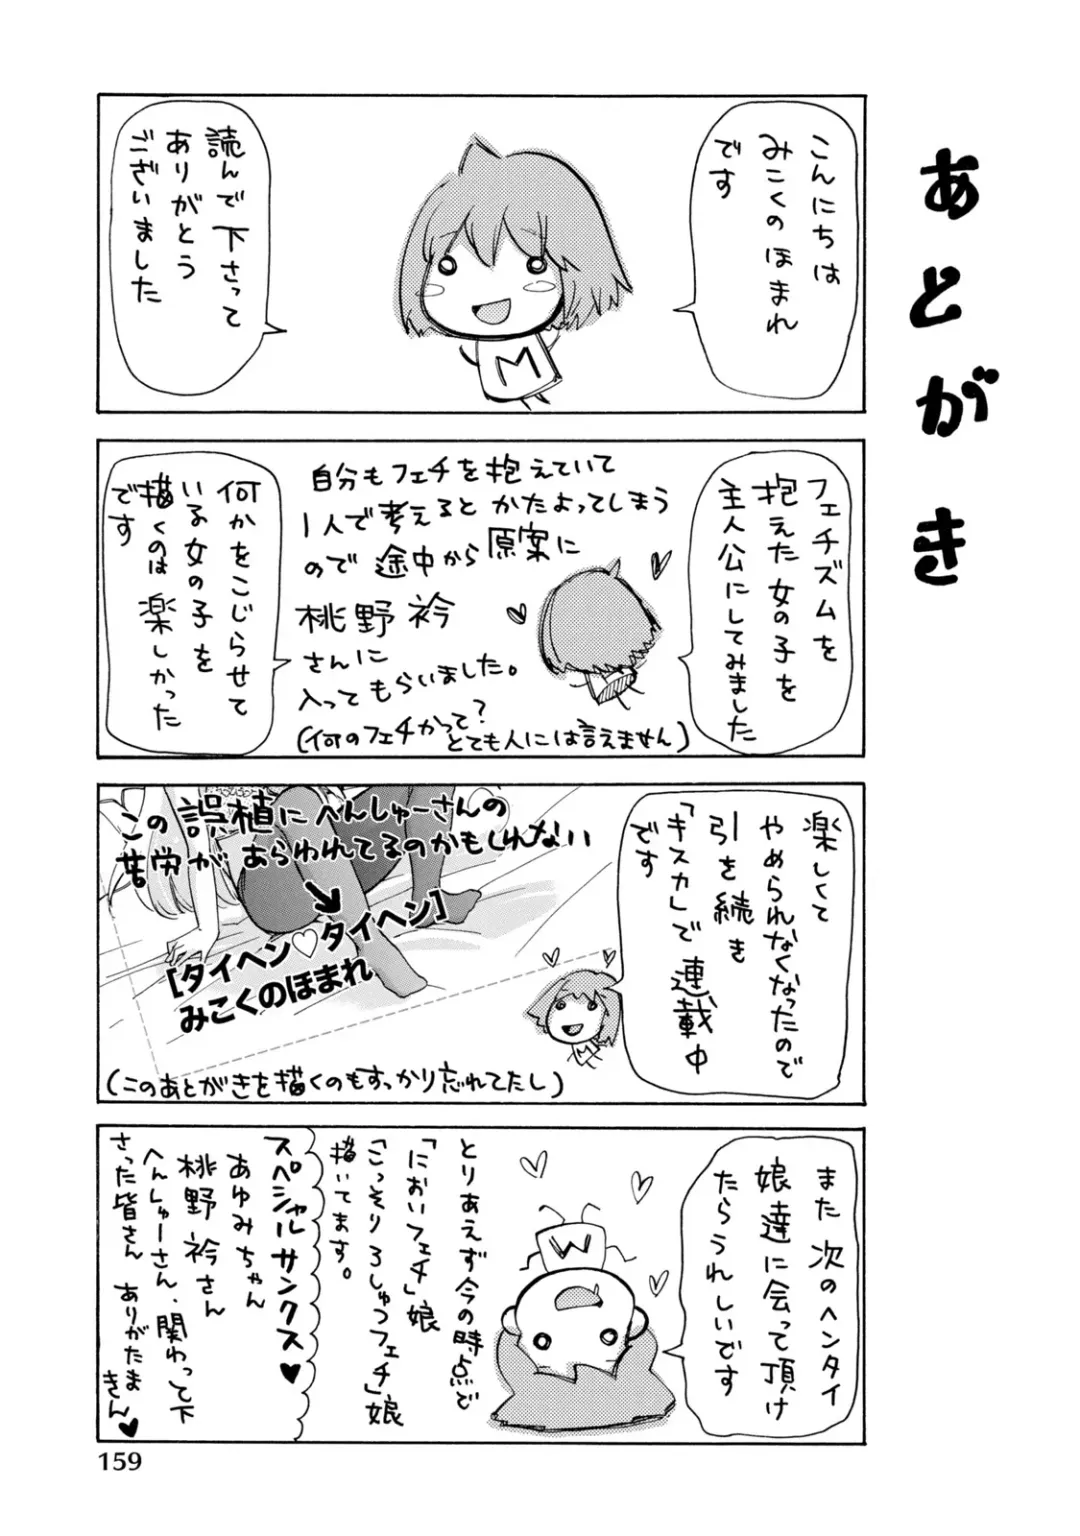 あとがき
こんにちは
みこくのほまれ
です
読んで下さって
ありがとう
ございました
フェチズムを
抱えた女の子を
主人公にしてみました
自分もフェチを抱えていて
1人で考えるとかたよってしまう
ので途中から原案に
桃野衿
さんに
入ってもらいました。
(何のフェチかって?
とても人には言えません)
何かをこじらせて
いる女の子を
描くのは楽しかった
です
楽しくて
やめられなくなったので
引を続き
「キスカ」で連載中
です
この誤植にへんしゅーさんの
苦労があらわれてるのかもしれない
[タイヘン♡タイヘン]
みこくのほまれ
(このあとがきを描くのもすっかり忘れてたし)
M
また次のヘンタイ
娘達に会って頂け
たらうれしいです
M
とりあえず今の時点で
「においフェチ」娘
「こっそりろしゅつフェチ」娘
描いてます。
スペシャルサンクス♥
あゆみちゃん
桃野衿さん
へんしゅーさん、関わって下
さった皆さん ありがたま
きん♥
159